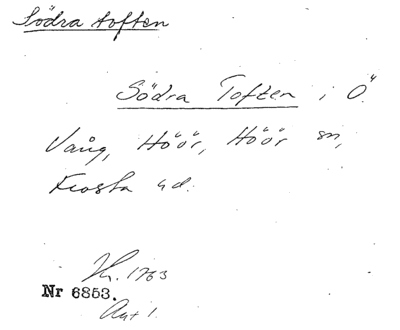 Södra toften
Södra Toften i Ö.
Vång, Höör, Höör sn,
Frosta hd.
1763
Nr 6853.
Akt 1.